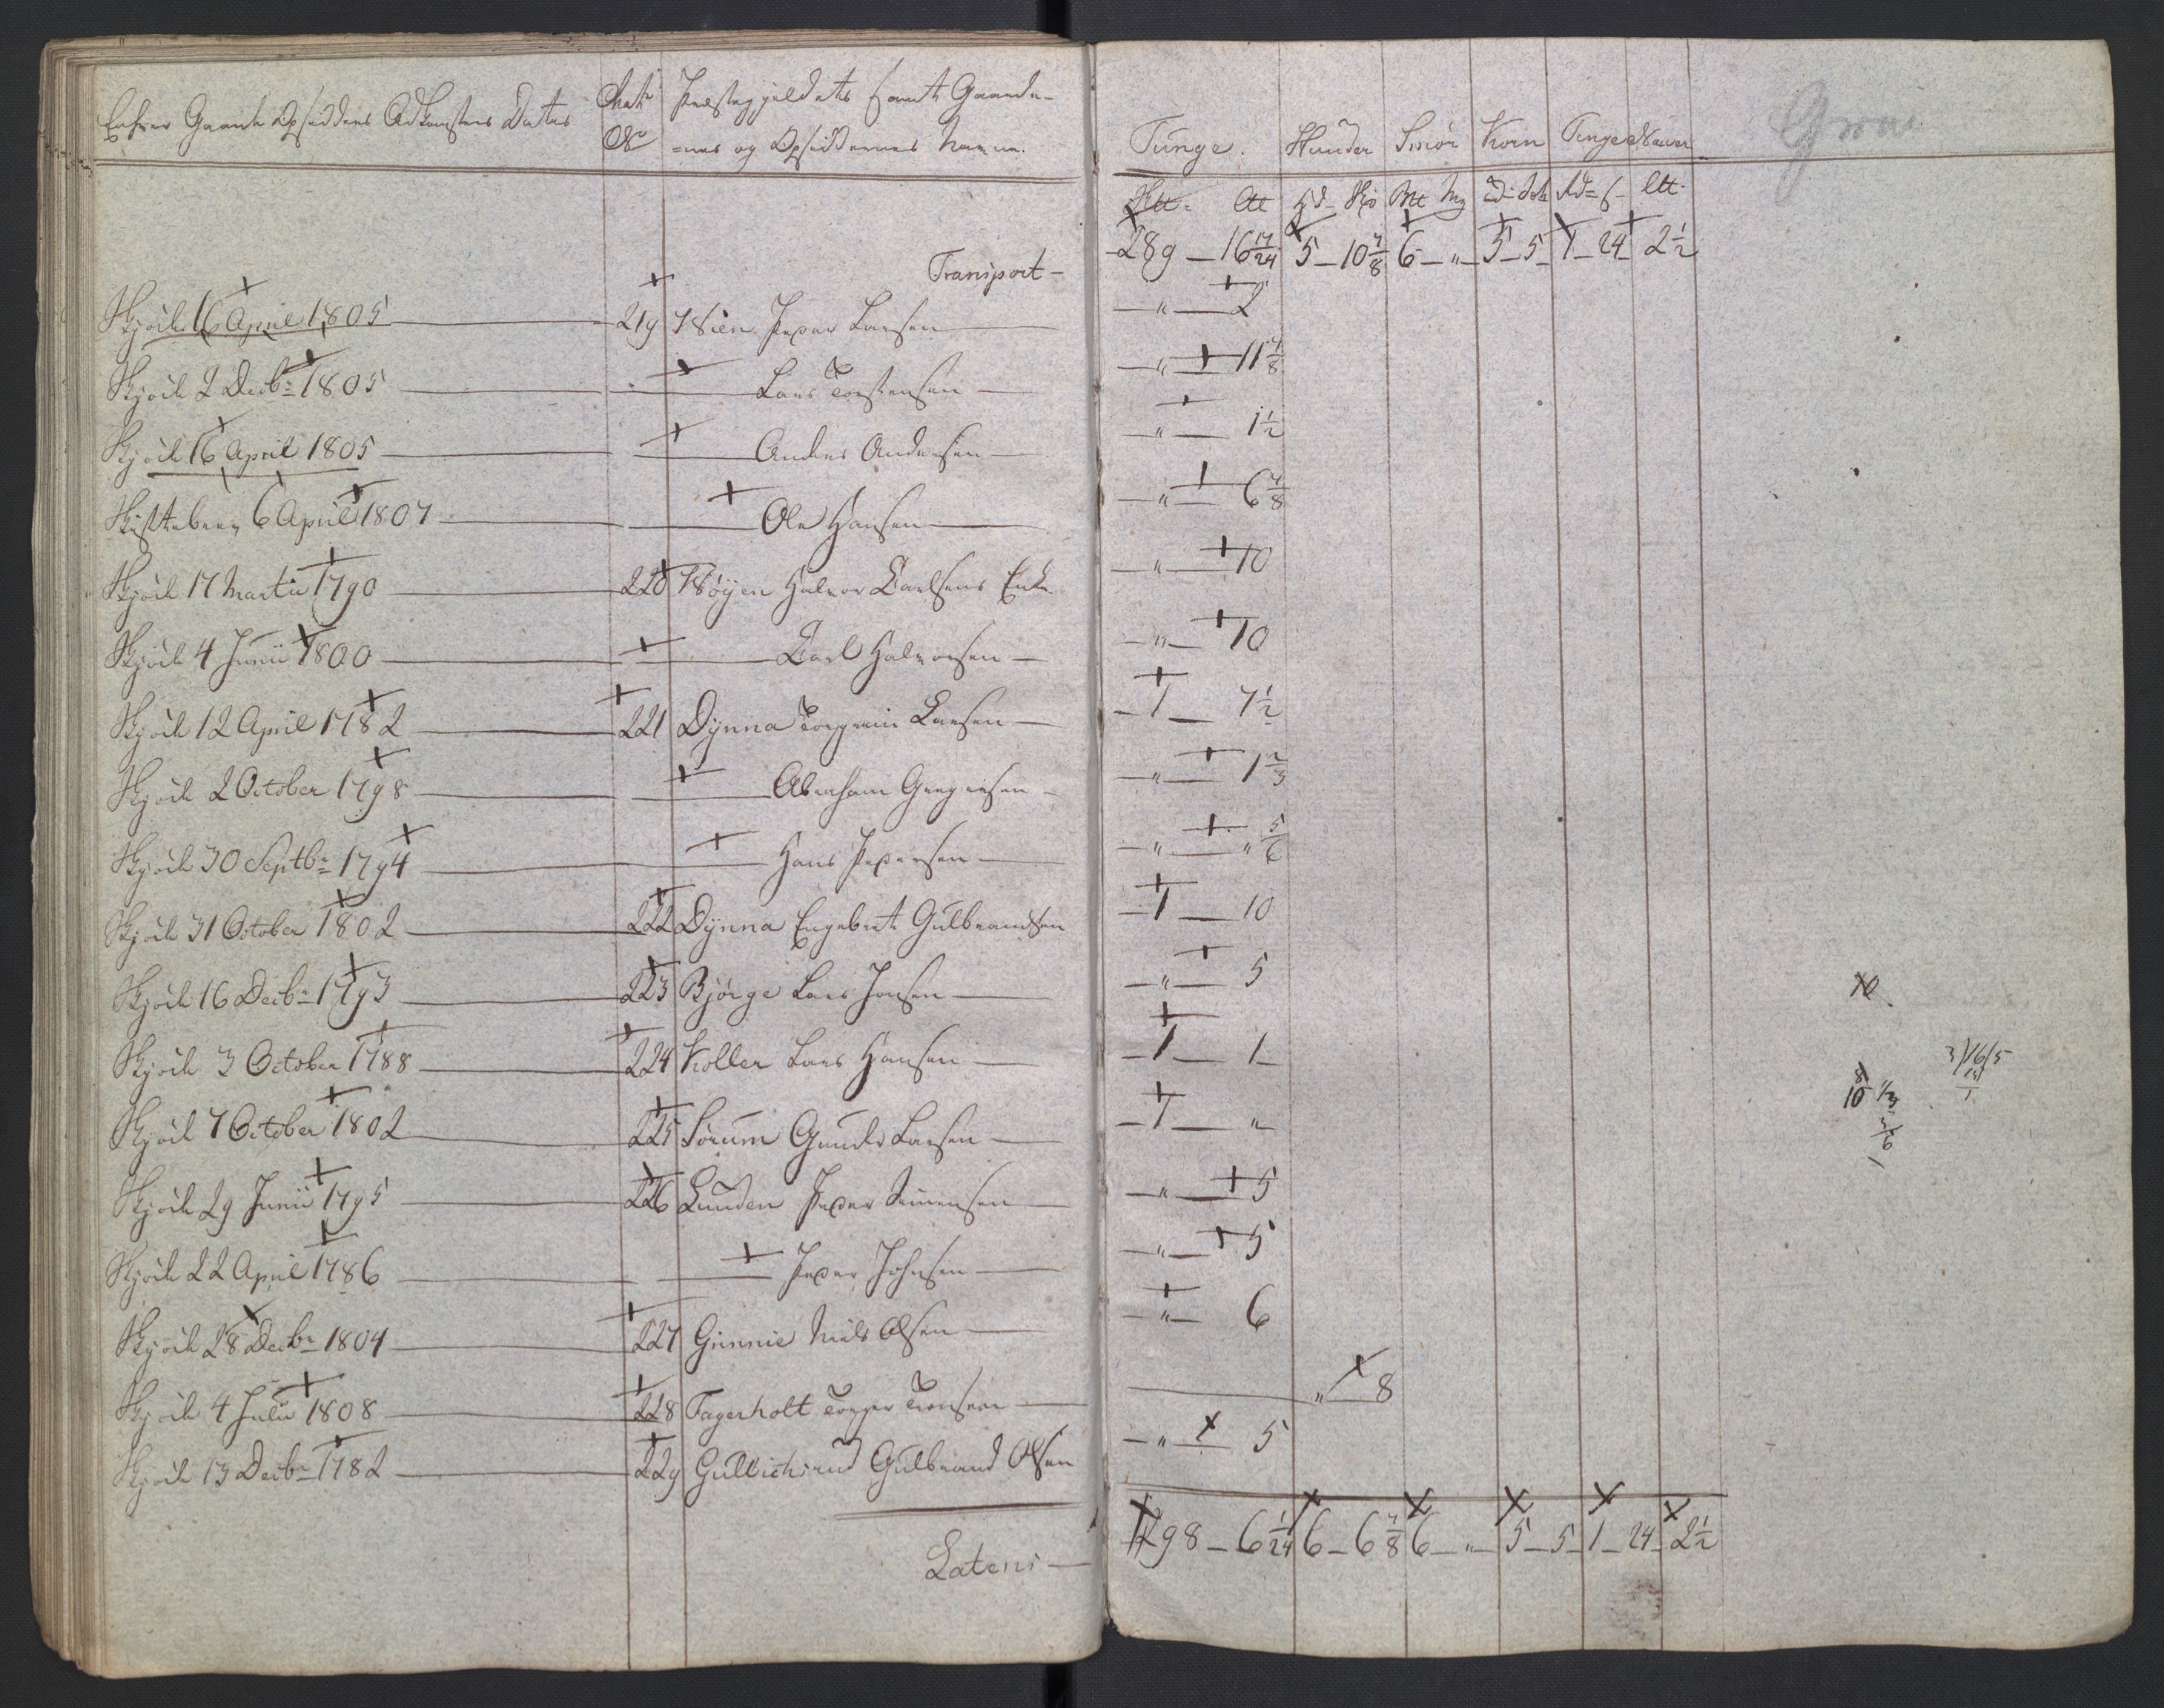 Enhver Gaards Opsidders Adkomsters Datis | Matr | Præstegjeldets samt Gaarde-
No | =nes og Opsiddernes Navne.
Tunge. | Hunder | Smør | Korn | Penge | Naver
Sktt. Ltt | Hd. Skp | Btt Mg | Rd. s | Ltt.
Transport — 289 — 16 17/24 | 5 — 10 7/8 | 6 — " — | 5 — 5 | 1 — 24 | 2 1/2
Skjøde 16 April 1805 — 219 Wien Peder Larsen — " — 2
Skjøde 2 Decbr 1805 — Lars Torstensen — " — 11 7/8
Skjøde 16 April 1805 — Anders Andersen — " — 1 1/2
Skiftebrev 6 April 1807 — Ole Hansen — " — 6 7/8
Skjøde 17 Martii 1790 — 220 Wøyen Halvor Carlsens Enke — " — 10
Skjøde 4 Junii 1800 — Carl Halvorsen — " — 10
Skjøde 12 April 1782 — 221 Dynna Torgrim Larsen — 1 — 7 1/2
Skjøde 2 October 1798 — Abraham Gregersen — " — 1 2/3
Skjøde 30 Septbr 1794 — Hans Pedersen — " — " 5/6
Skjøde 31 October 1802 — 222 Dynna Engebret Gulbrandsen — 1 — 10
Skjøde 16 Decbr 1793 — 223 Bjørge Lars Jonsen — " — 5
Skjøde 3 October 1788 — 224 Koller Lars Hansen — 1 — 1
Skjøde 7 October 1802 — 225 Sørum Gunder Larsen — 1 — "
Skjøde 29 Junii 1795 — 226 Lunden Peder Simensen — " — 5
Skjøde 22 April 1786 — Peder Johnsen — " — 5
Skjøde 28 Decbr 1804 — 227 Grinnie Niels Olsen — " — 6
Skjøde 4 Julii 1808 — 228 Fagerholt — " — 8
Skjøde 13 Decbr 1782 — 229 Gulbrand Olsen — " — 5
Lateris — 298 — 6 1/24 | 6 — 6 7/8 | 6 — " — | 5 — 5 | 1 — 24 | 2 1/2